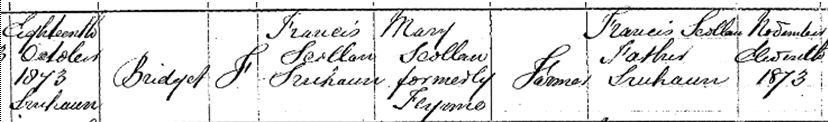 Eighteenth
October
1873
Sruhaun
Bridget
F
Francis
Scollan
Sruhaun
Mary
Scollan
formerly
Farmer
Francis Scollan
Father
Sruhaun
November
1873